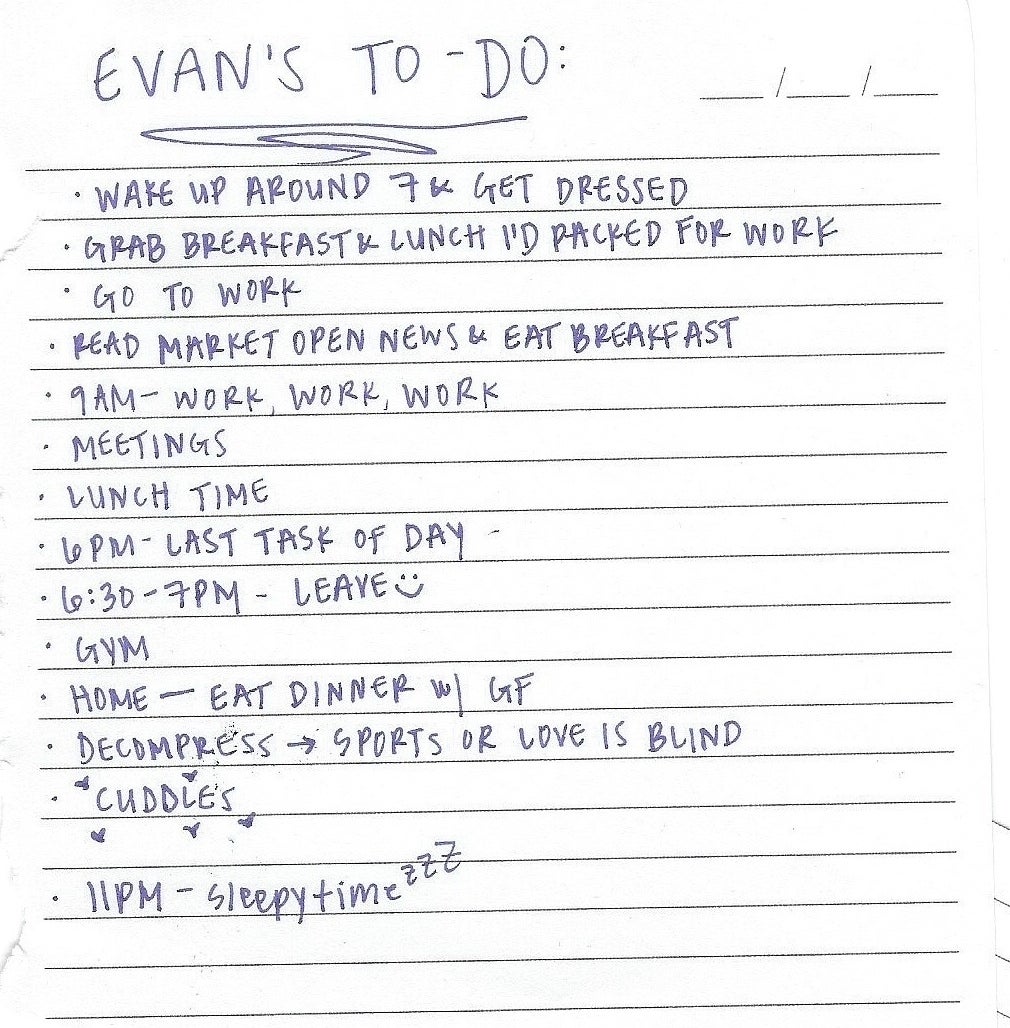 EVAN'S TO-DO:
__/__/__
· WAKE UP AROUND 7 & GET DRESSED
· GRAB BREAKFAST & LUNCH I'D PACKED FOR WORK
· GO TO WORK
· READ MARKET OPEN NEWS & EAT BREAKFAST
· 9AM- WORK, WORK, WORK
· MEETINGS
· LUNCH TIME
· 6PM- LAST TASK OF DAY -
· 6:30-7PM - LEAVE
· GYM
· HOME — EAT DINNER W/ GF
· DECOMPRESS → SPORTS OR LOVE IS BLIND
· CUDDLES
· 11PM - sleepytime zzz